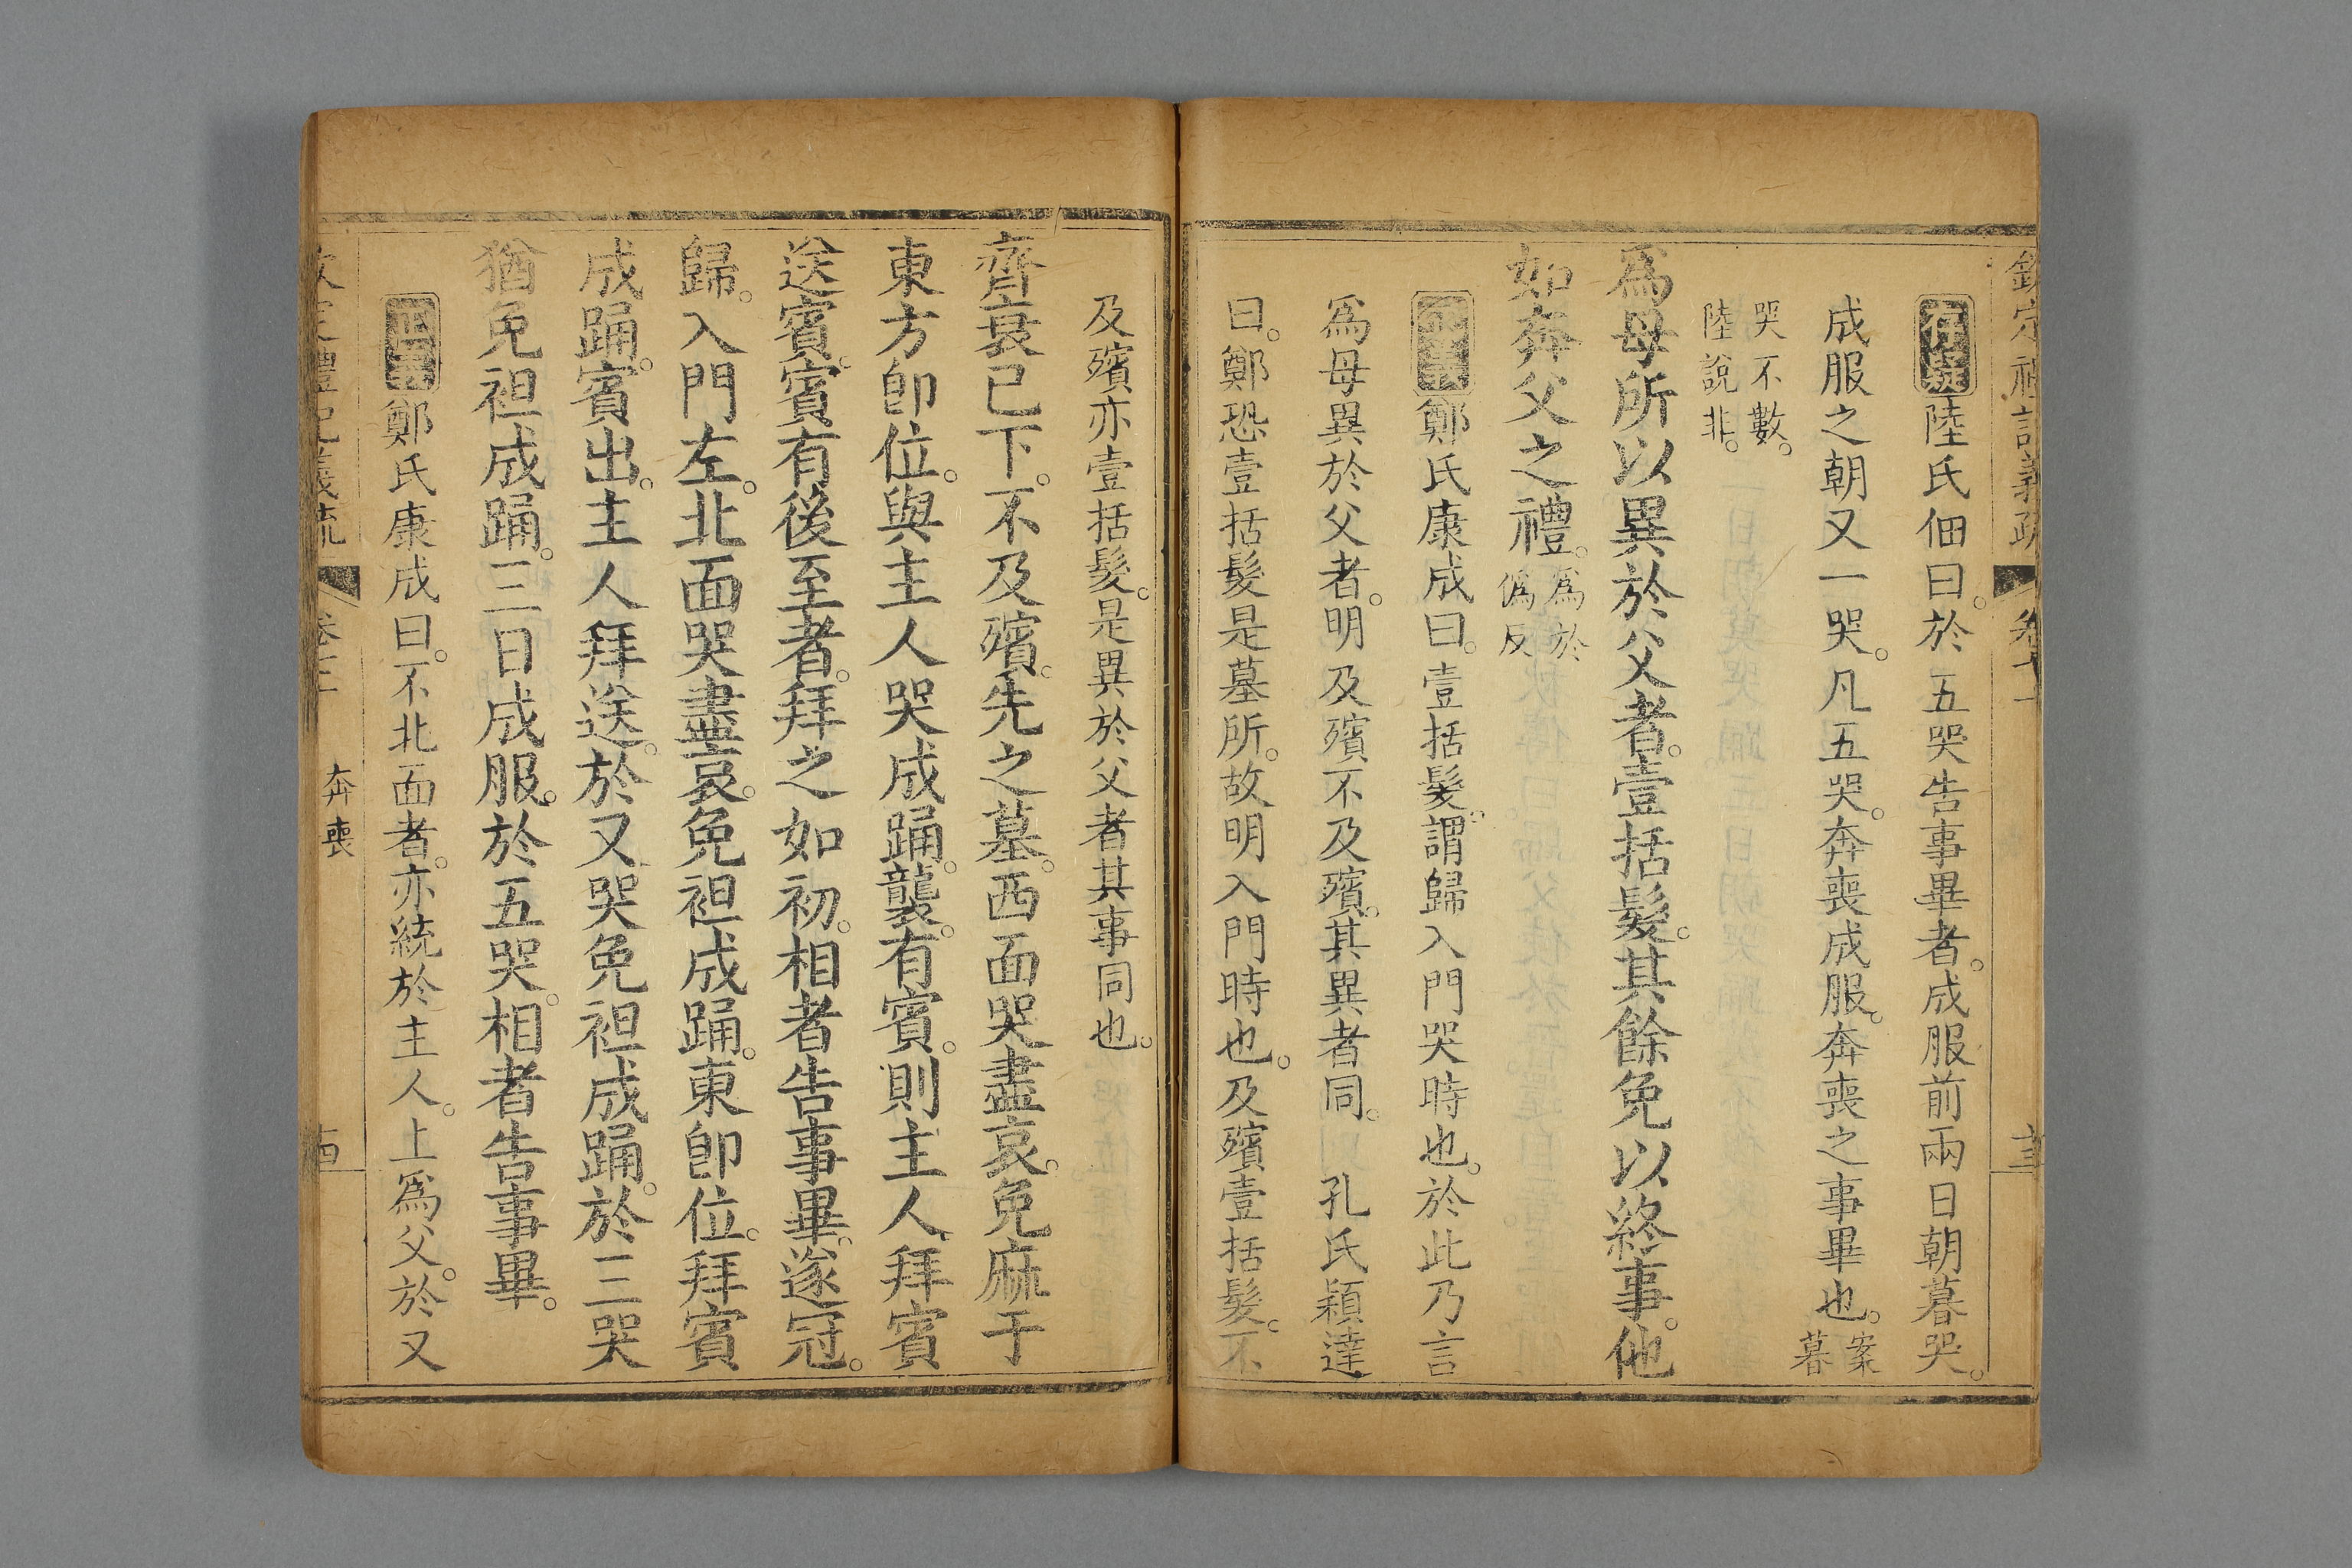 欽定禮記義疏 卷七十一
存疑陸氏佃曰於五哭告事畢者成服前兩日朝暮哭
成服之朝又一哭凡五哭奔喪成服奔喪之事畢也案暮
哭不數
陸說非
爲母所以異於父者壹括髮其餘免以終事他
如奔父之禮爲於僞反
正義鄭氏康成曰壹括髮謂歸入門哭時也於此乃言
爲母異於父者明及殯不及殯其異者同 孔氏穎達
曰鄭恐壹括髮是墓所故明入門時也及殯壹括髮不
及殯亦壹括髮是異於父者其事同也
齊衰已下不及殯先之墓西面哭盡哀免麻于
東方卽位與主人哭成踊襲有賓則主人拜賓
送賓賓有後至者拜之如初相者告事畢遂冠
歸入門左北面哭盡哀免袒成踊東卽位拜賓
成踊賓出主人拜送於又哭免袒成踊於三哭
猶免袒成踊三日成服於五哭相者告事畢
正義鄭氏康成曰不北面者亦統於主人上爲父於又
奔喪